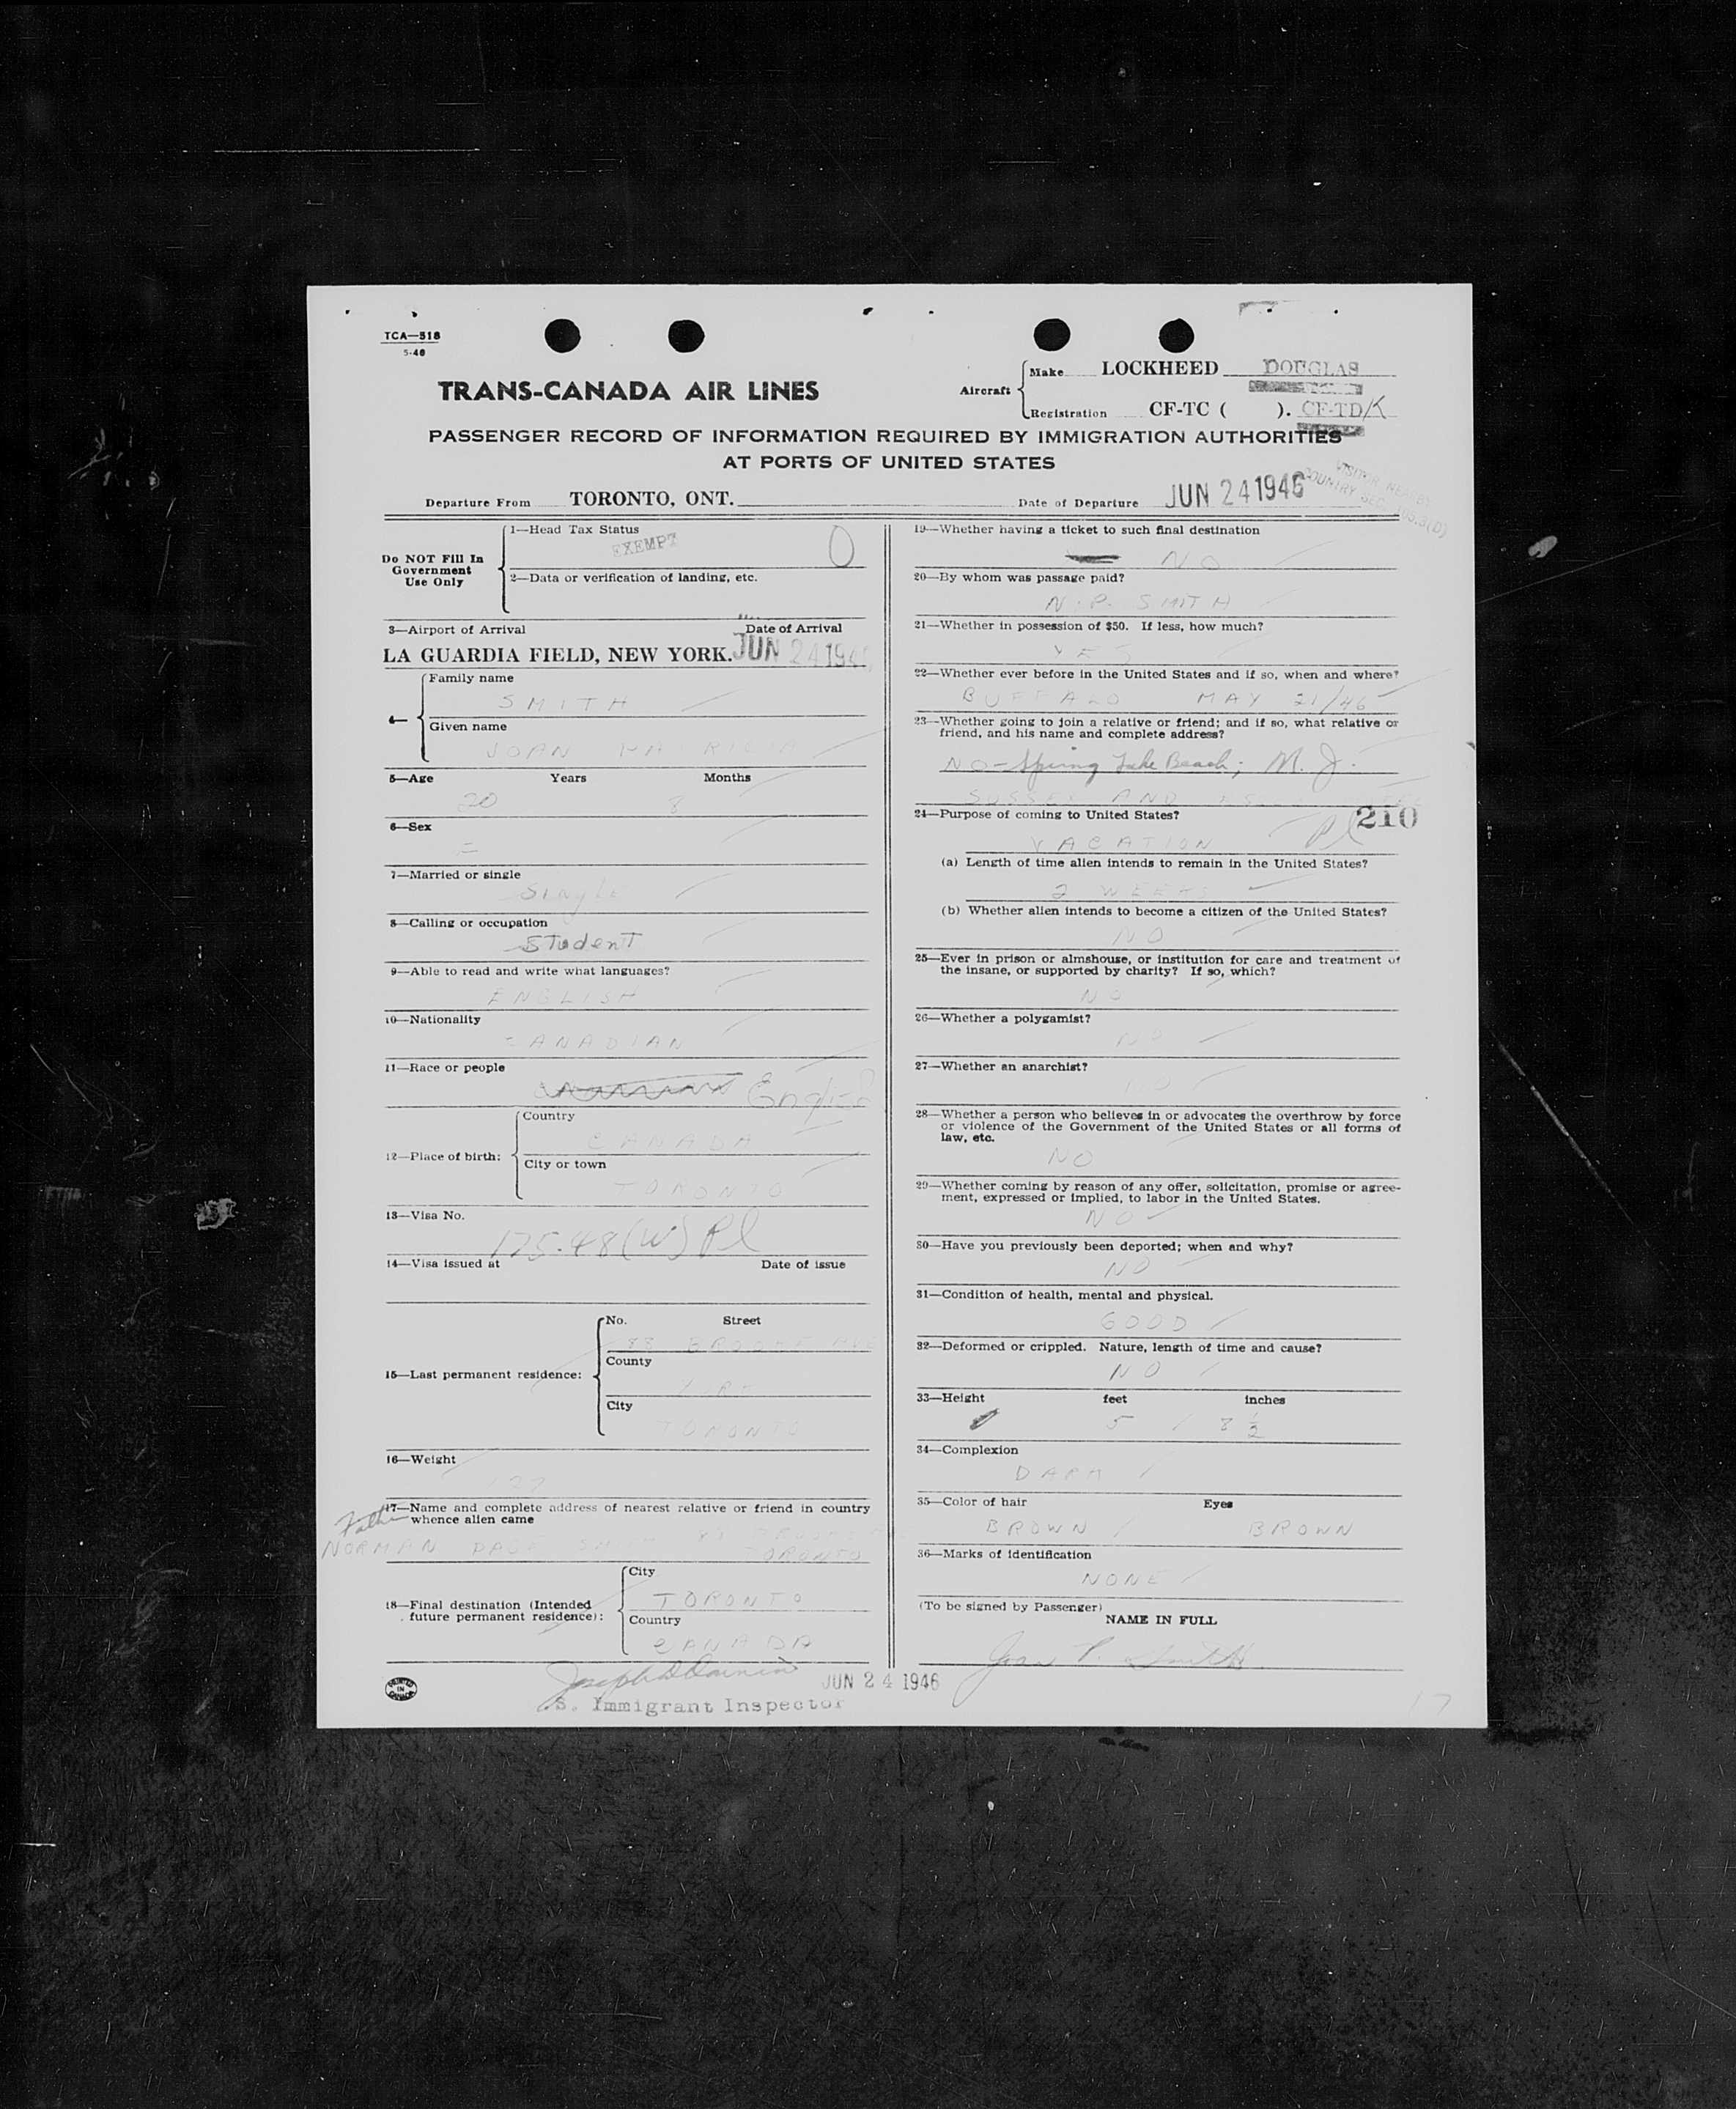 TCA—518
5-46
TRANS-CANADA AIR LINES
Aircraft
Make LOCKHEED DOUGLAS
Registration CF-TC ( ). CF-TD/K
PASSENGER RECORD OF INFORMATION REQUIRED BY IMMIGRATION AUTHORITIES
AT PORTS OF UNITED STATES
Departure From TORONTO, ONT. Date of Departure JUN 24 1946
VISITOR
COUNTRY SEC.
Do NOT Fill In
Government
Use Only
1—Head Tax Status
EXEMPT 0
2—Data or verification of landing, etc.
3—Airport of Arrival Date of Arrival
LA GUARDIA FIELD, NEW YORK. JUN 24 194
4—
Family name
SMITH
Given name
JOAN PATRICIA
5—Age Years Months
20 8
6—Sex
7—Married or single
Single
8—Calling or occupation
Student
9—Able to read and write what languages?
ENGLISH
10—Nationality
CANADIAN
11—Race or people
English
12—Place of birth:
Country
CANADA
City or town
TORONTO
13—Visa No.
175.48(W) Pl
14—Visa issued at Date of issue
15—Last permanent residence:
No. Street
88
County
City
TORONTO
16—Weight
17—Name and complete address of nearest relative or friend in country
whence alien came
Father
NORMAN SMITH
TORONTO
18—Final destination (Intended
future permanent residence):
City
TORONTO
Country
CANADA
JUN 24 1946
.S. Immigrant Inspector
PRINTED IN CANADA
19—Whether having a ticket to such final destination
NO
20—By whom was passage paid?
N. P. SMITH
21—Whether in possession of $50. If less, how much?
YES
22—Whether ever before in the United States and if so, when and where?
BUFFALO MAY 21/46
23—Whether going to join a relative or friend; and if so, what relative or
friend, and his name and complete address?
NO - Spring Lake Beach; N. J.
SUSSEX AND
210
24—Purpose of coming to United States?
VACATION Pl
(a) Length of time alien intends to remain in the United States?
2 WEEKS
(b) Whether alien intends to become a citizen of the United States?
NO
25—Ever in prison or almshouse, or institution for care and treatment of
the insane, or supported by charity? If so, which?
NO
26—Whether a polygamist?
NO
27—Whether an anarchist?
NO
28—Whether a person who believes in or advocates the overthrow by force
or violence of the Government of the United States or all forms of
law, etc.
NO
29—Whether coming by reason of any offer, solicitation, promise or agree-
ment, expressed or implied, to labor in the United States.
NO
30—Have you previously been deported; when and why?
NO
31—Condition of health, mental and physical.
GOOD
32—Deformed or crippled. Nature, length of time and cause?
NO
33—Height feet inches
5 8 1/2
34—Complexion
DARK
35—Color of hair Eyes
BROWN BROWN
36—Marks of identification
NONE
(To be signed by Passenger)
NAME IN FULL
Joan P. Smith
17